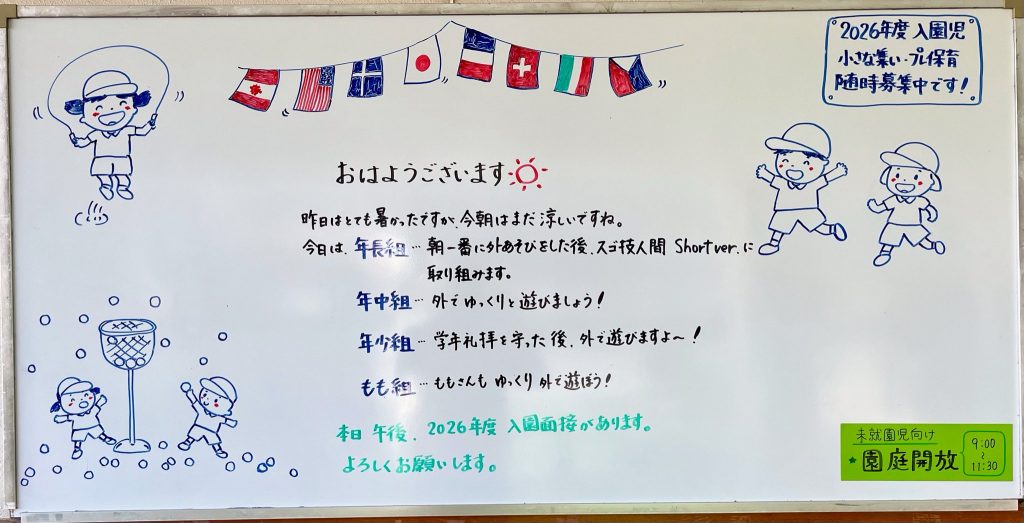 2026年度 入園児
小さな集い・プレ保育
随時募集中です!
おはようございます
昨日はとても暑かったですが、今朝はまだ涼しいですね。
今日は、年長組…朝一番に外あそびをした後、スゴ技人間 Short ver. に
取り組みます。
年中組…外でゆっくりと遊びましょう!
年少組…学年礼拝を守った後、外で遊びますよ〜!
もも組…ももさんも ゆっくり外で遊ぼう!
本日 午後、2026年度 入園面接があります。
よろしくお願いします。
未就園児向け
★園庭開放
9:00
〜
11:30